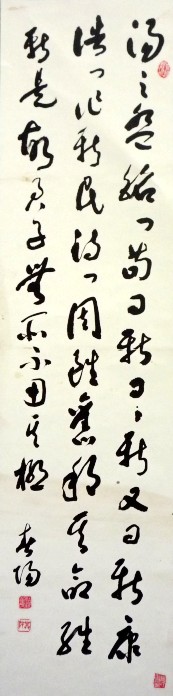 湯之盤銘曰苟日新日〻新又日新康
誥曰作新民詩曰周雖舊邦其命維
新是故君子無所不用其極